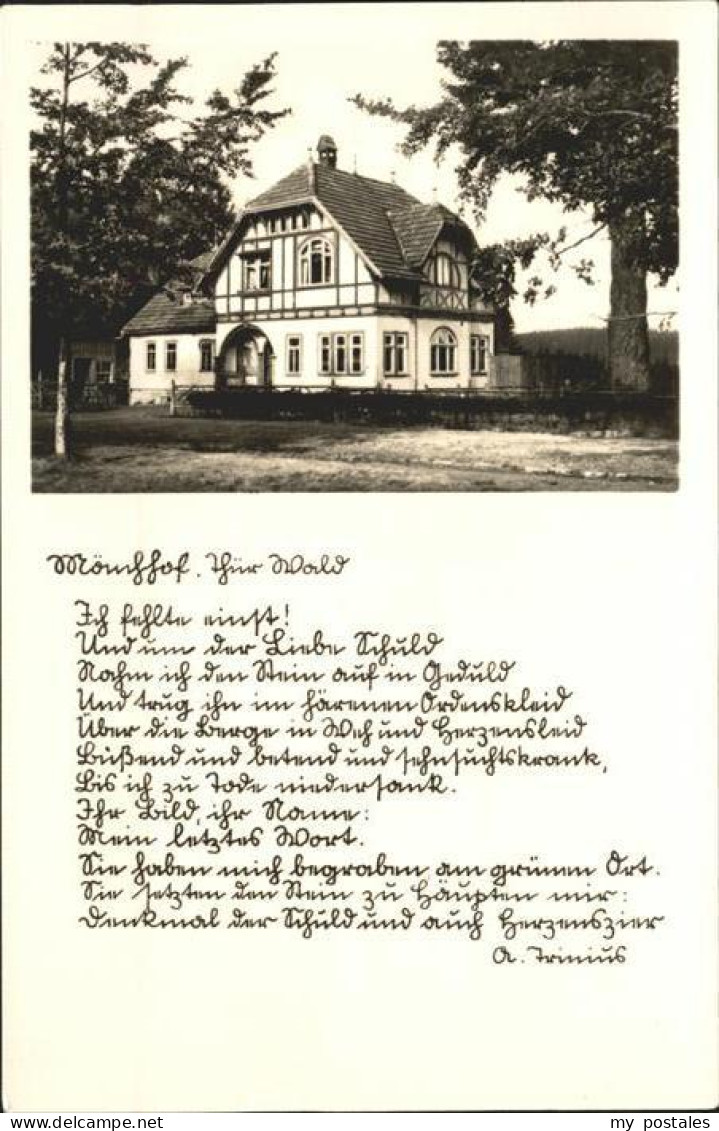 Mönchhof. Thür Wald
Ich fehlte einst!
Und um der Liebe Schuld
Nahm ich den Stein auf in Geduld
Und trug ihn im härenen Ordenskleid
Über die Berge in Weh und Herzensleid
Büßend und betend und sehnsuchtskrank,
Bis ich zu Tode niedersank.
Ihr Bild, ihr Name:
Mein letztes Wort.
Sie haben mich begraben am grünen Ort.
Sie setzten den Stein zu Häupten mir:
Denkmal der Schuld und auch Herzenszier
A. Trinius
my postales